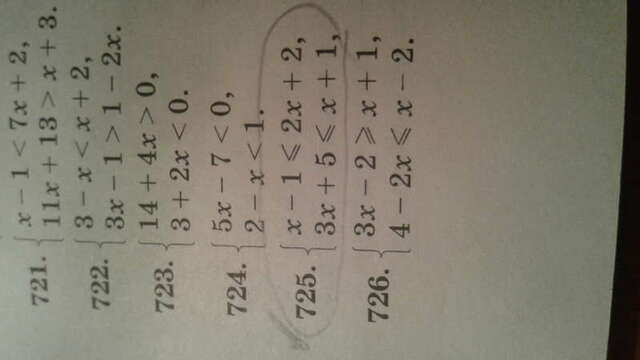 721. { x − 1 < 7x + 2,
11x + 13 > x + 3.
722. { 3 − x < x + 2,
3x − 1 > 1 − 2x.
723. { 14 + 4x > 0,
3 + 2x < 0.
724. { 5x − 7 < 0,
2 − x < 1.
725. { x − 1 ⩽ 2x + 2,
3x + 5 ⩽ x + 1,
726. { 3x − 2 ⩾ x + 1,
4 − 2x ⩽ x − 2.